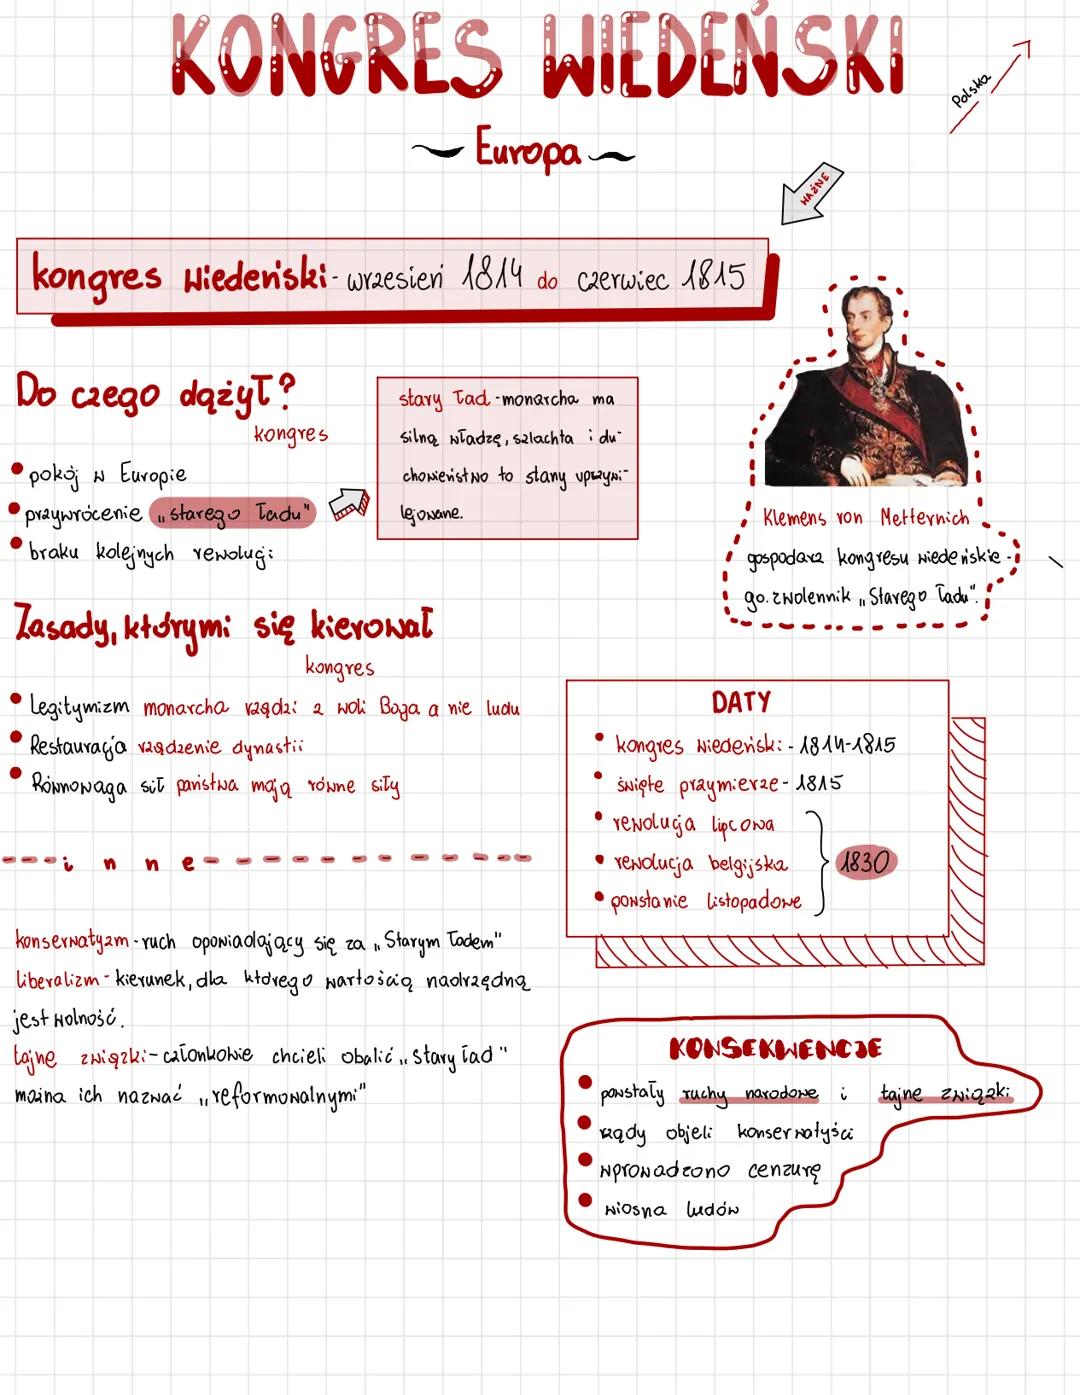 KONGRES WIEDEŃSKI
Polska
Europa
WAŻNE
kongres wiedeński - wrzesień 1814 do czerwiec 1815
Do czego dążył?
kongres
pokój w Europie
przywrócenie „starego ładu"
braku kolejnych rewolucji
stary ład - monarcha ma
silną władzę, szlachta i du-
chowieństwo to stany uprzywi-
lejowane.
Klemens von Metternich
gospodarz kongresu wiedeńskie-
go. zwolennik „Starego ładu".
Zasady, którymi się kierował
kongres
Legitymizm monarcha rządzi z woli Boga a nie ludu
Restauracja rządzenie dynastii
Równowaga sił państwa mają równe siły
inne
konserwatyzm - ruch opowiadający się za „Starym ładem"
liberalizm - kierunek, dla którego wartością nadrzędną
jest wolność.
tajne związki - członkowie chcieli obalić „stary ład"
można ich nazwać „reformowalnymi"
DATY
kongres wiedeński - 1814-1815
święte przymierze - 1815
rewolucja lipcowa
rewolucja belgijska
powstanie listopadowe
1830
KONSEKWENCJE
powstały ruchy narodowe i tajne związki
rządy objeli konserwatyści
wprowadzono cenzurę
wiosna ludów